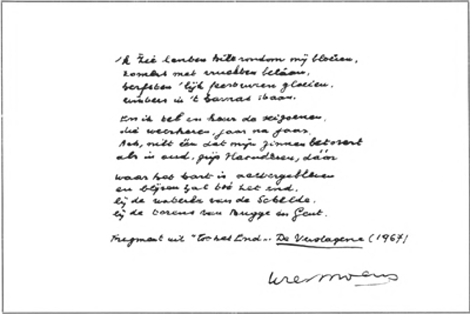 'k Zie lenten stil rondom mij bloeien,
zomers met vruchten belâan,
herfsten 'lijk feestvuren gloeien,
winters in 't harnas staan.
En ik tel en keur de seizoenen,
die weerkeren, jaar na jaar.
Ach, niet één dat mijn zinnen betovert
als in oud, grijs Vlaanderen, dáár
waar het hart is achtergebleven
en blijven zal tot het end,
bij de van de Schelde,
bij de torens van Brugge en Gent.
Fragment uit "Tot het End". De Verslagene (1967)
Wies Moens